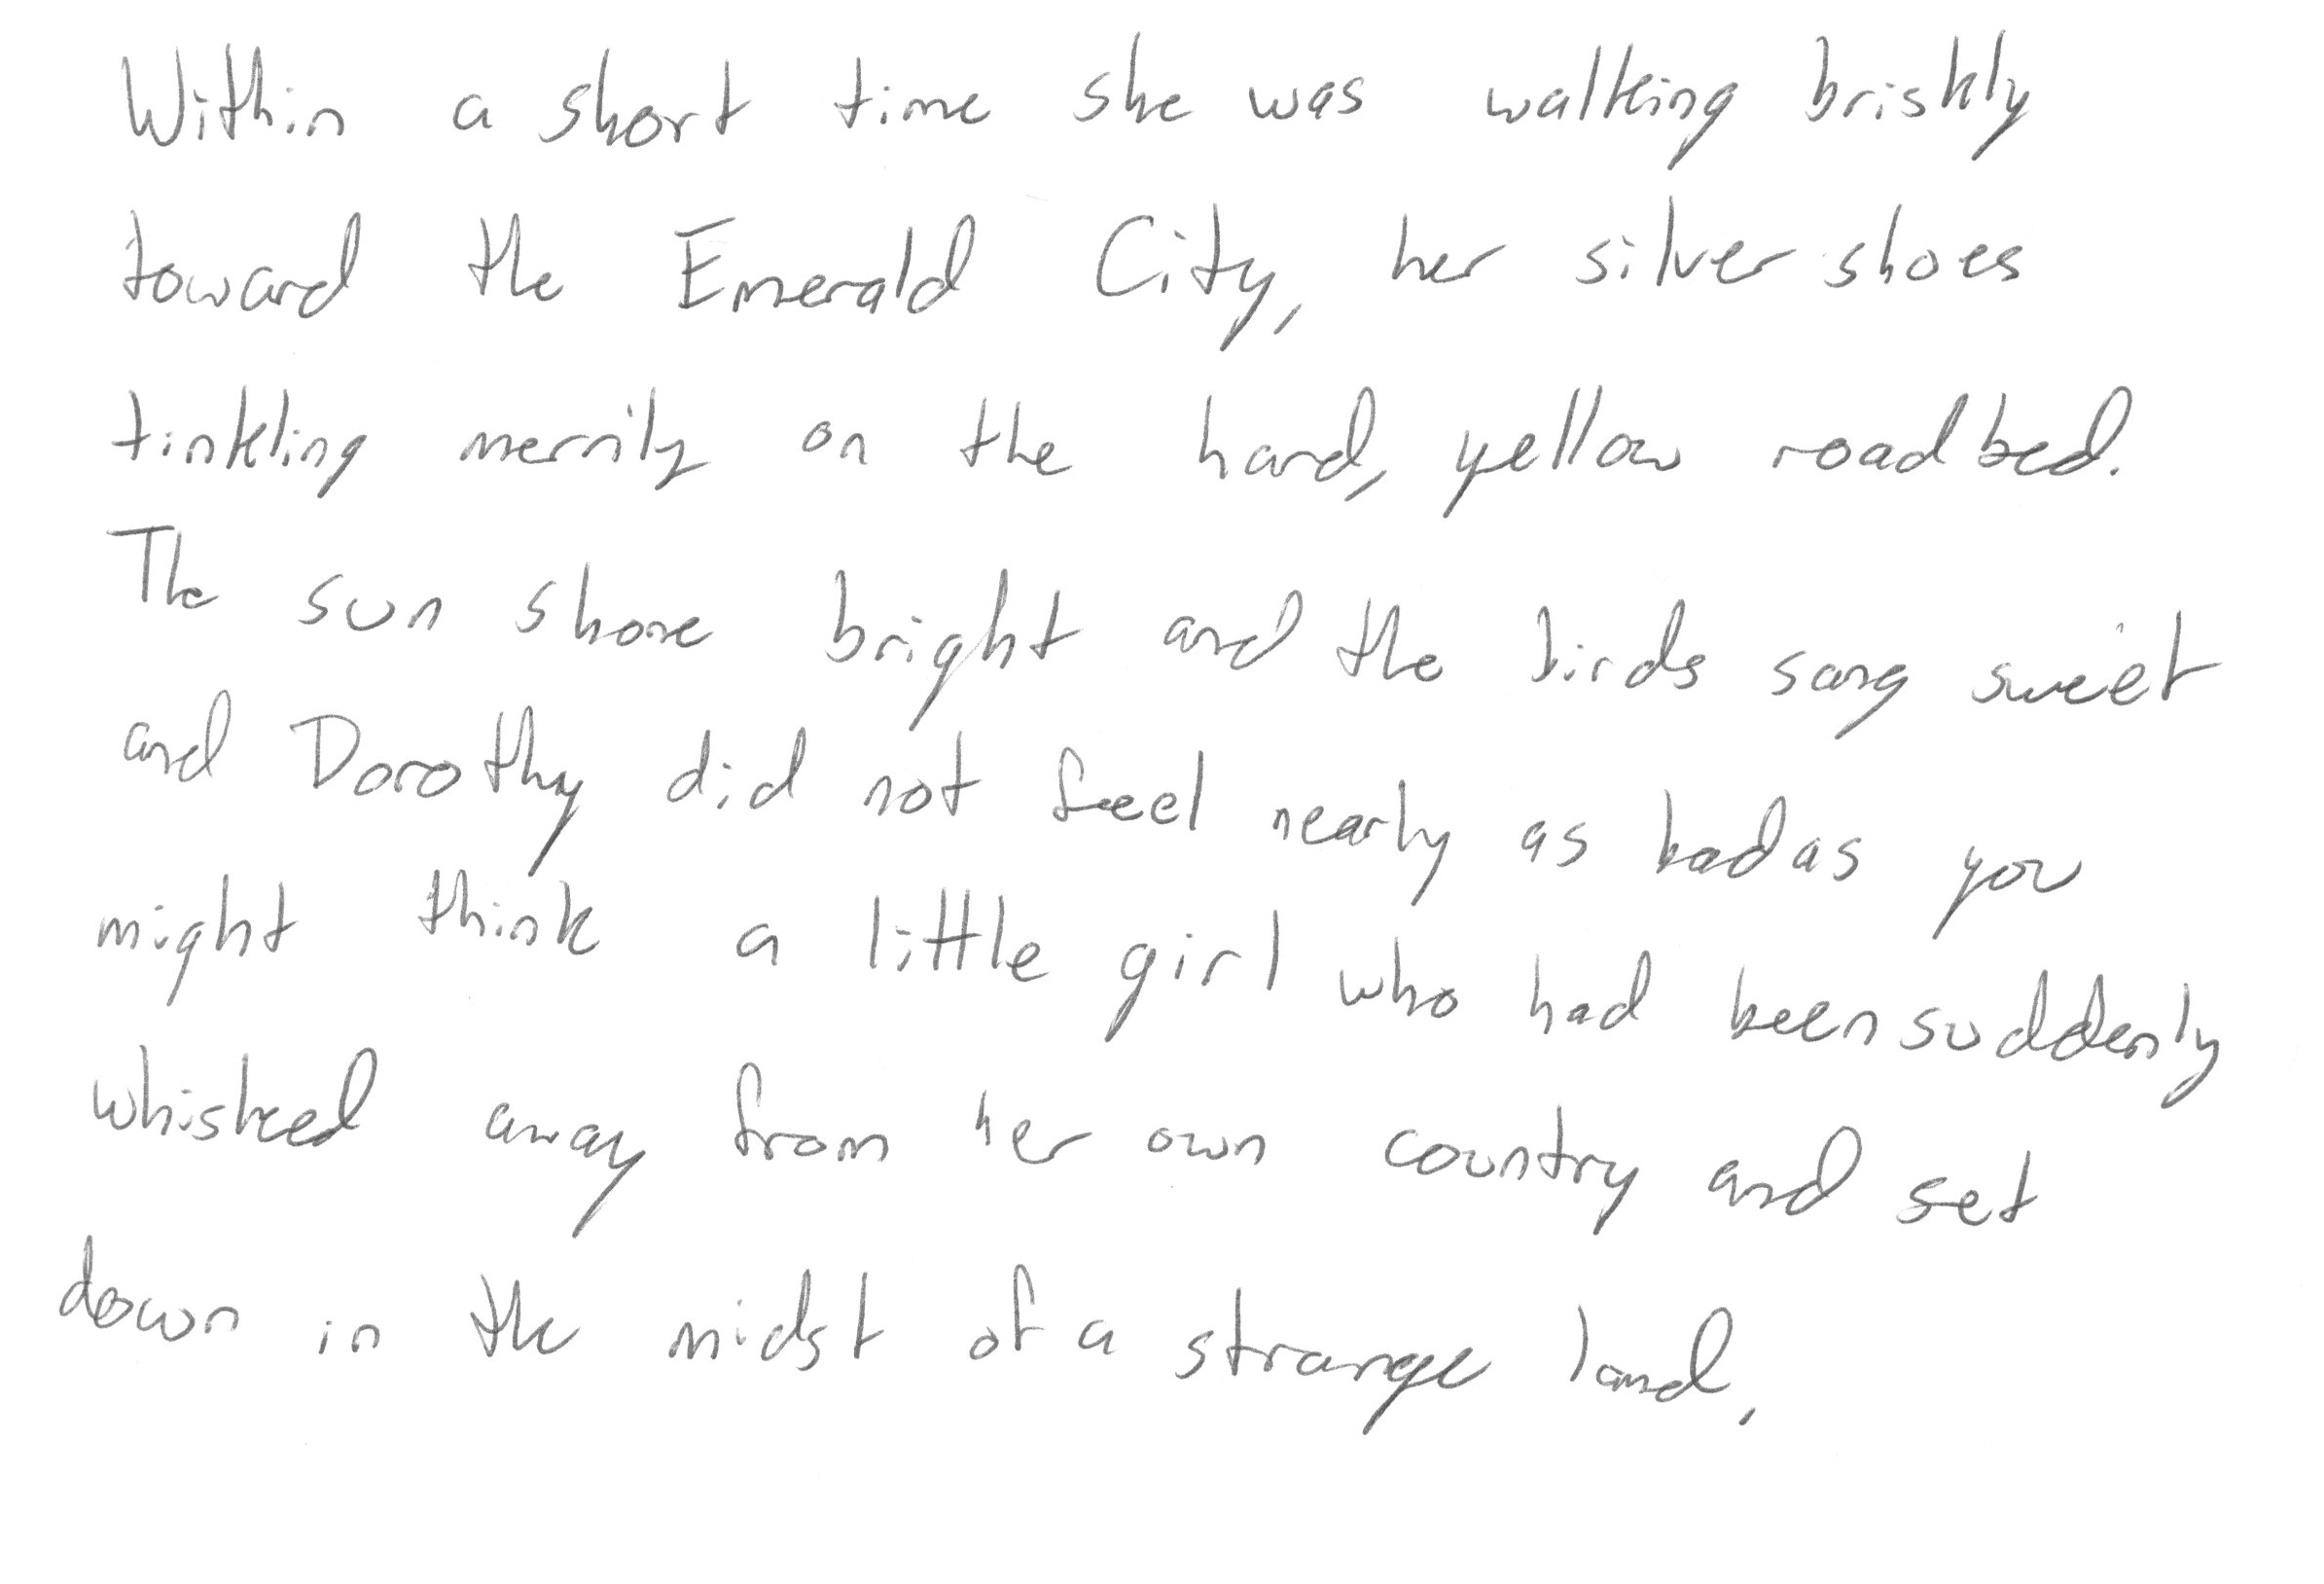 Within a short time she was walking briskly
toward the Emerald City, her silver shoes
tinkling merrily on the hard, yellow roadbed.
The sun shone bright and the birds sang sweet
and Dorothy did not feel nearly as bad as you
might think a little girl who had been suddenly
whisked away from her own country and set
down in the midst of a strange land,